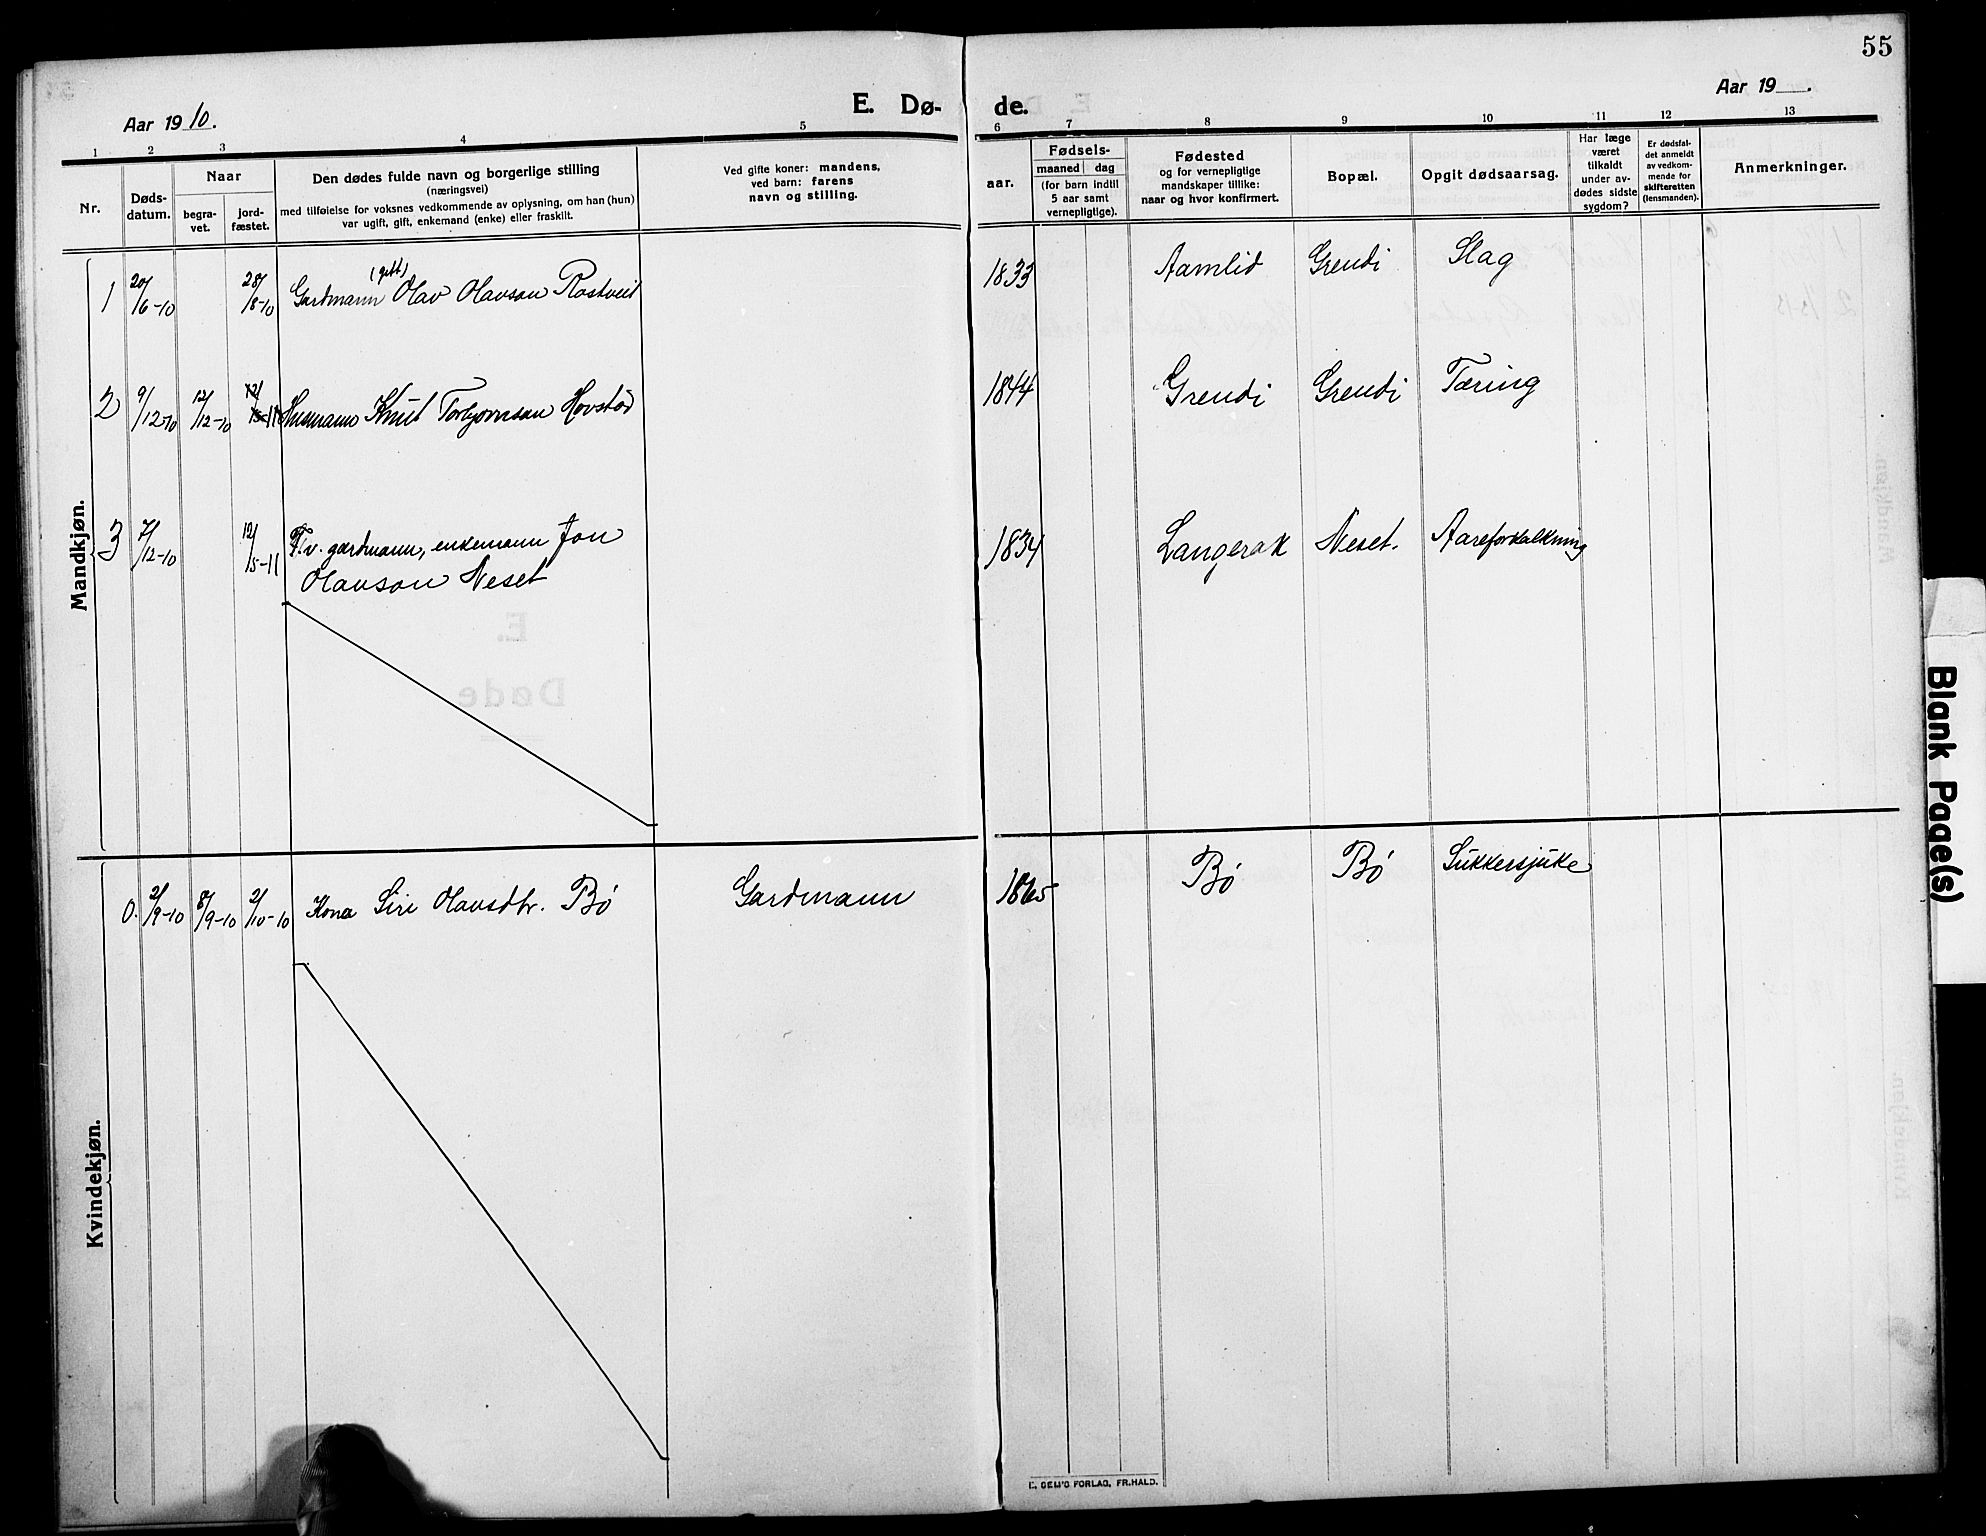 55
Aar 1910.
E. Dø-
de.
Aar 19    .
1 2 3 4 5 6 7 8 9 10 11 12 13
Nr.
Døds-
datum.
Naar
begra-
vet.
jord-
fæstet.
Den dødes fulde navn og borgerlige stilling
(næringsvei)
med tilføielse for voksnes vedkommende av oplysning, om han (hun)
var ugift, gift, enkemand (enke) eller fraskilt.
Ved gifte koner: mandens,
ved barn: farens
navn og stilling.
Fødsels-
aar.
maaned dag
(for barn indtil
5 aar samt
vernepligtige).
Fødested
og for vernepligtige
mandskaper tillike:
naar og hvor konfirmert.
Bopæl.
Opgit dødsaarsag.
Har læge
været
tilkaldt
under av-
dødes sidste
sygdom?
Er dødsfal-
det anmeldt
av vedkom-
mende for
skifteretten
(lensmanden).
Anmerkninger.
Mandkjøn.
(gift)
1 20/6-10 28/8-10 Gardmann Olav Olavson Rostveit 1833 Aamlid Grendi Slag
2 9/12-10 12/12-10 Husmann Knut Torbjornson Hovstød 1844 Grendi Grendi Tæring
3 7/12-10 12/5-11 F.v. gardmann, enkemann Jon 1834 Langerak Neset. Aareforkalkning
Olavson Neset
Kvindekjøn.
0. 2/9-10 8/9-10 2/10-10 Kona Siri Olavsdtr. Bø Gardmann 1865 Bø Bø Sukkersjuke
E.
Døde
Blank Page(s)
FORLAG, FR.HALD.